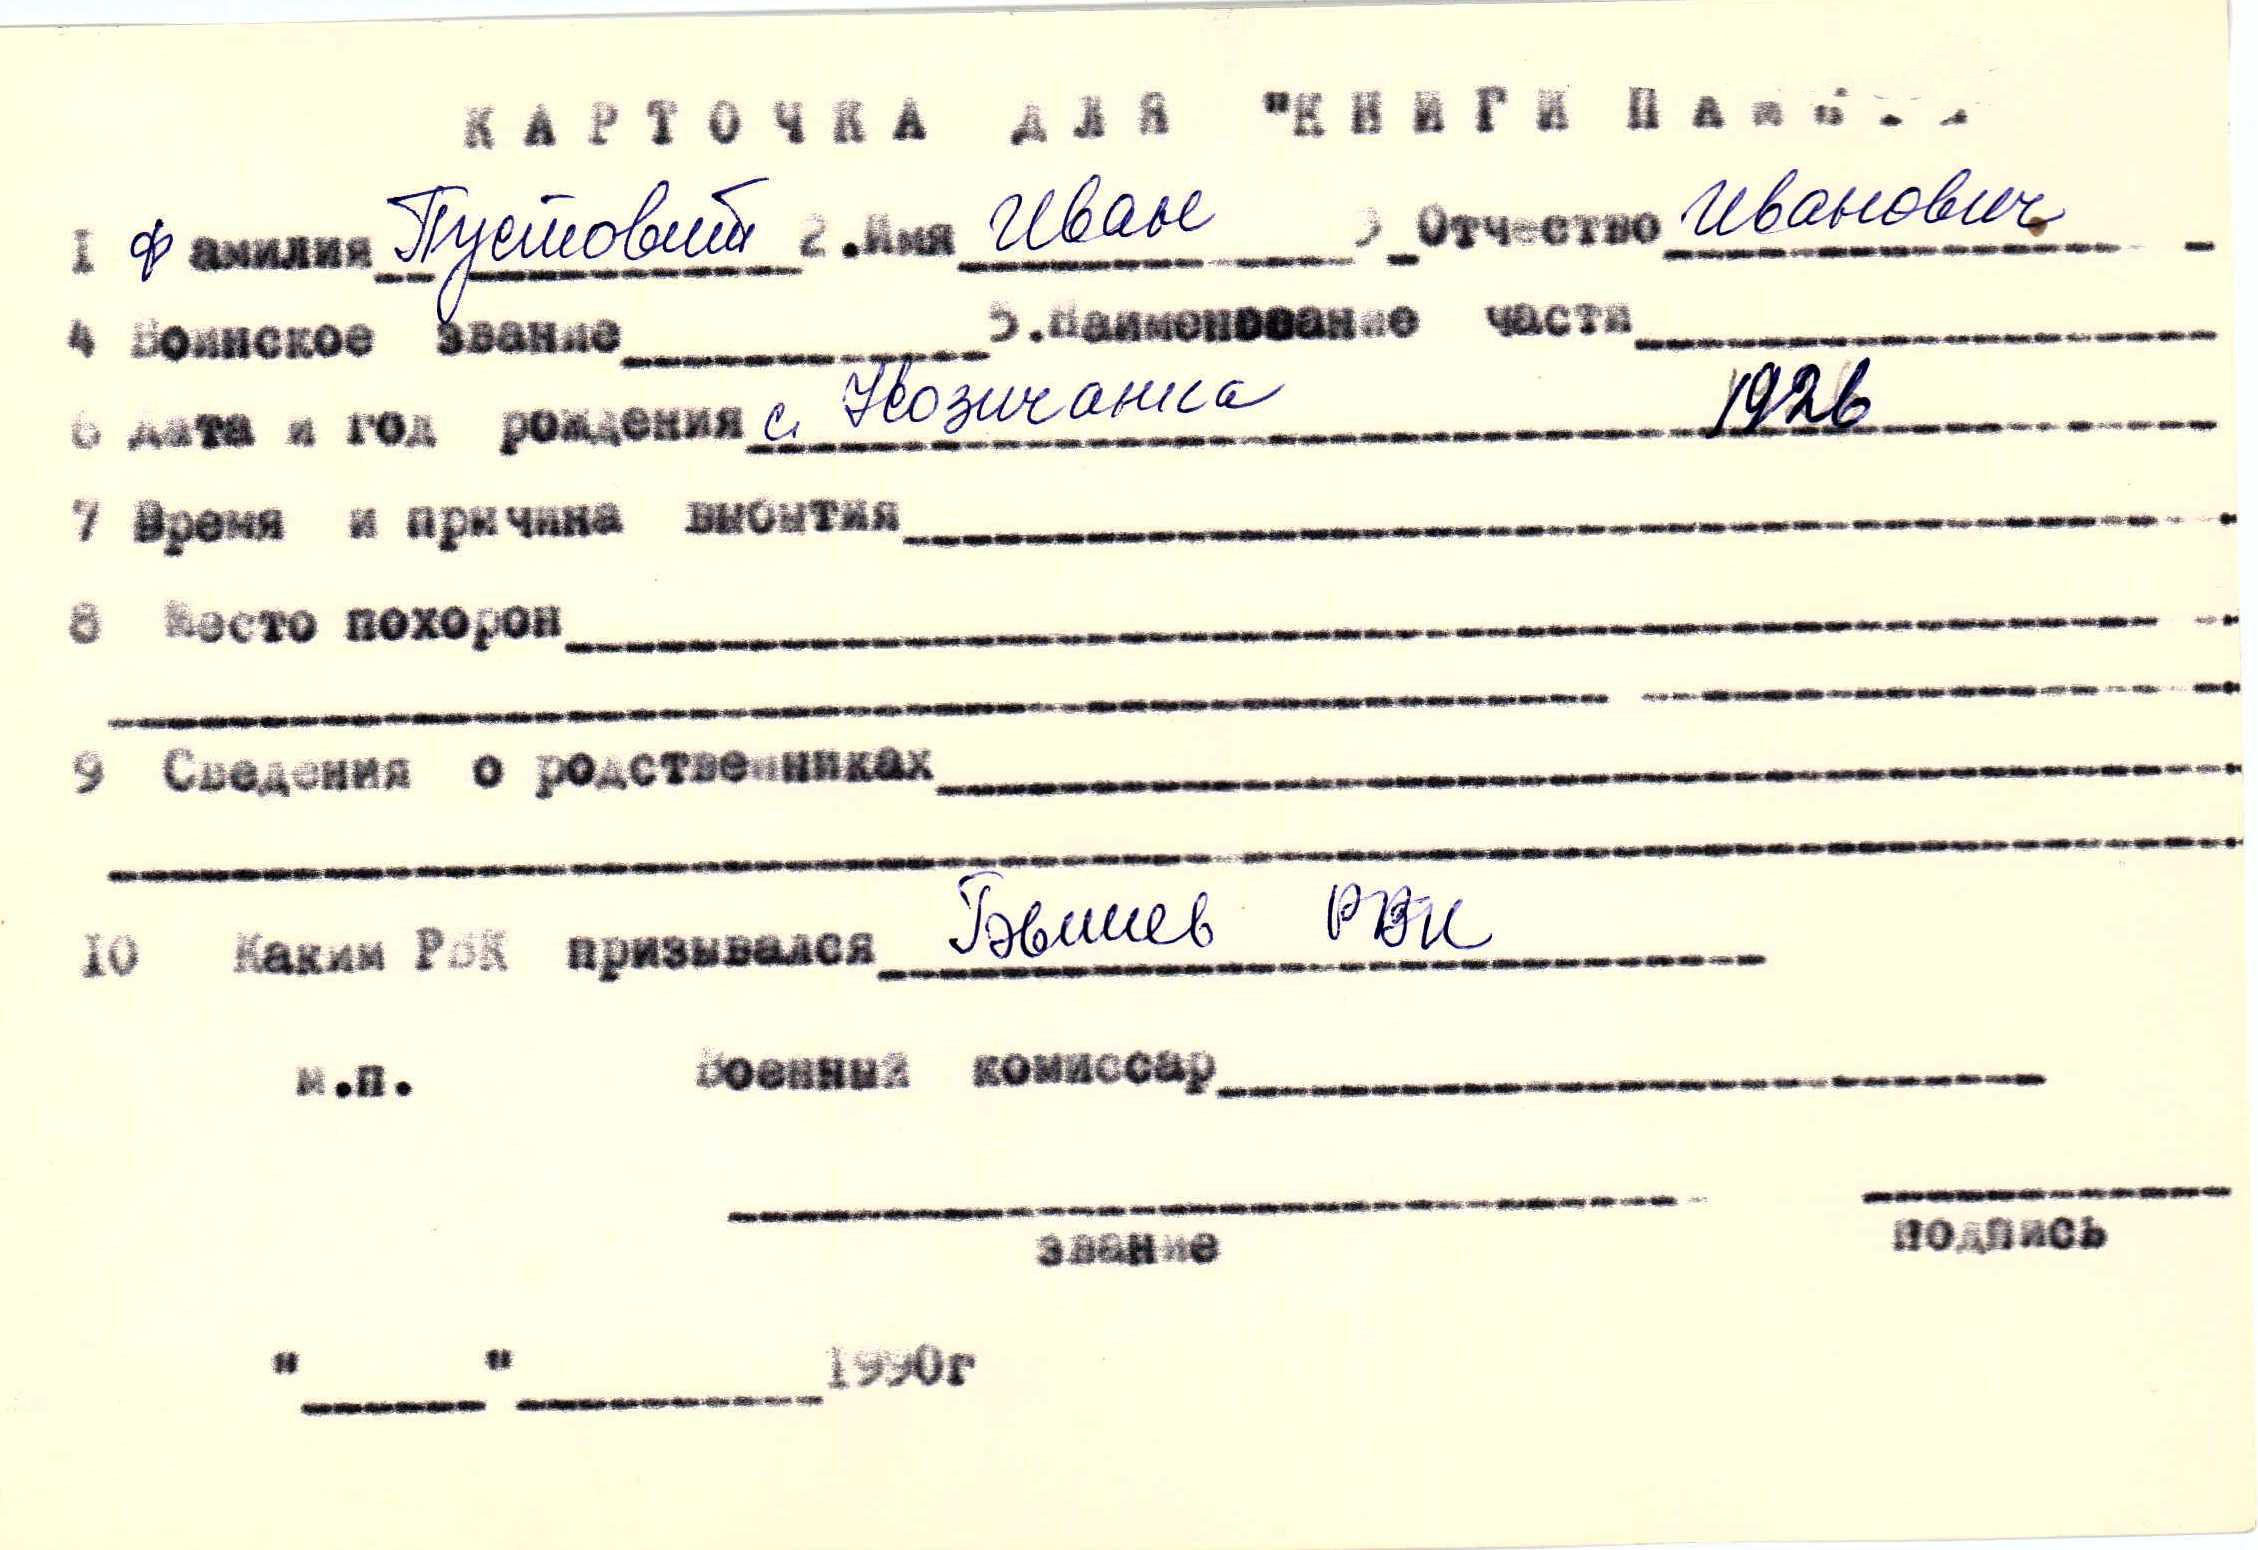 КАРТОЧКА ДЛЯ "КНИГИ
I Фамилия Пустовит 2.Имя Иван 3 Отчество Иванович
4 Воинское звание 5.Наименование части
6 Дата и год рождения с. Козичанка 1926
7 Время и причина выбытия
8 Место похорон
9 Сведения о родственниках
10 Каким РВК призывался РВК
м.п. Военный комиссар
звание подпись
" " 1990г